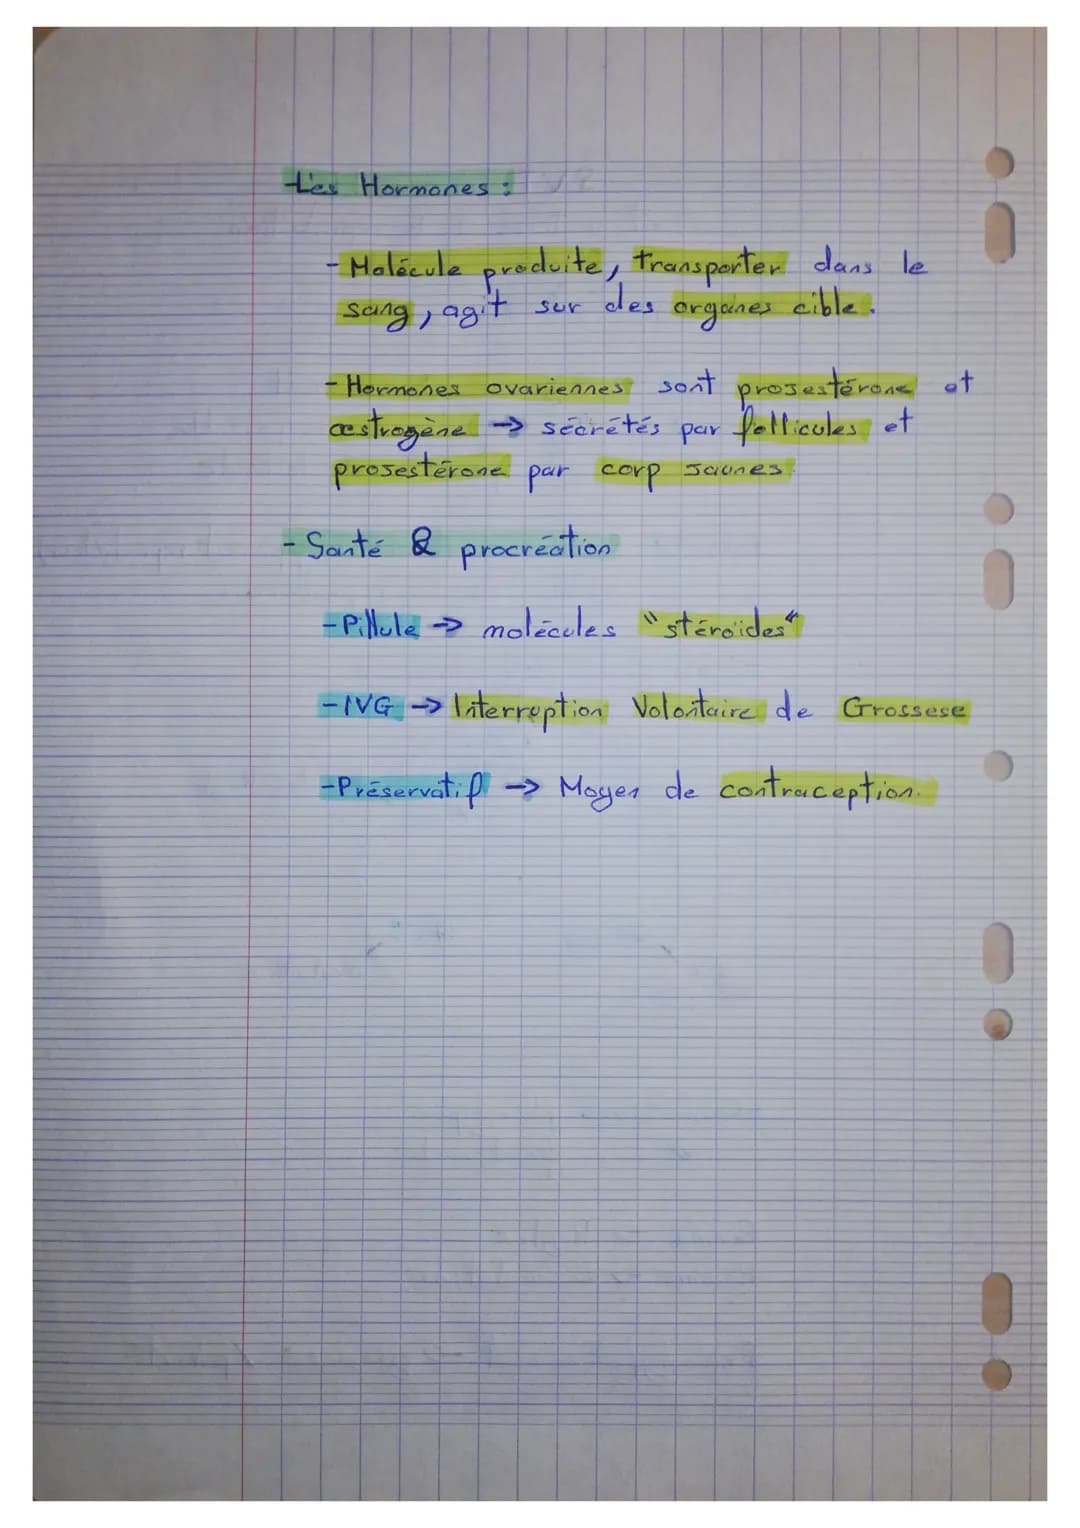 -Les Hormones :
- Molécule produite, transporter dans le
sang, agit sur des organes cible.
- Hormones ovariennes sont projestérone et
œstrogène → sécrétés par follicules et
projestérone par corp jaunes.
- Santé & procréation
- Pillule → molécules "stéroïdes"
- IVG → Interruption Volontaire de Grossese
- Préservatif → Moyen de contraception.